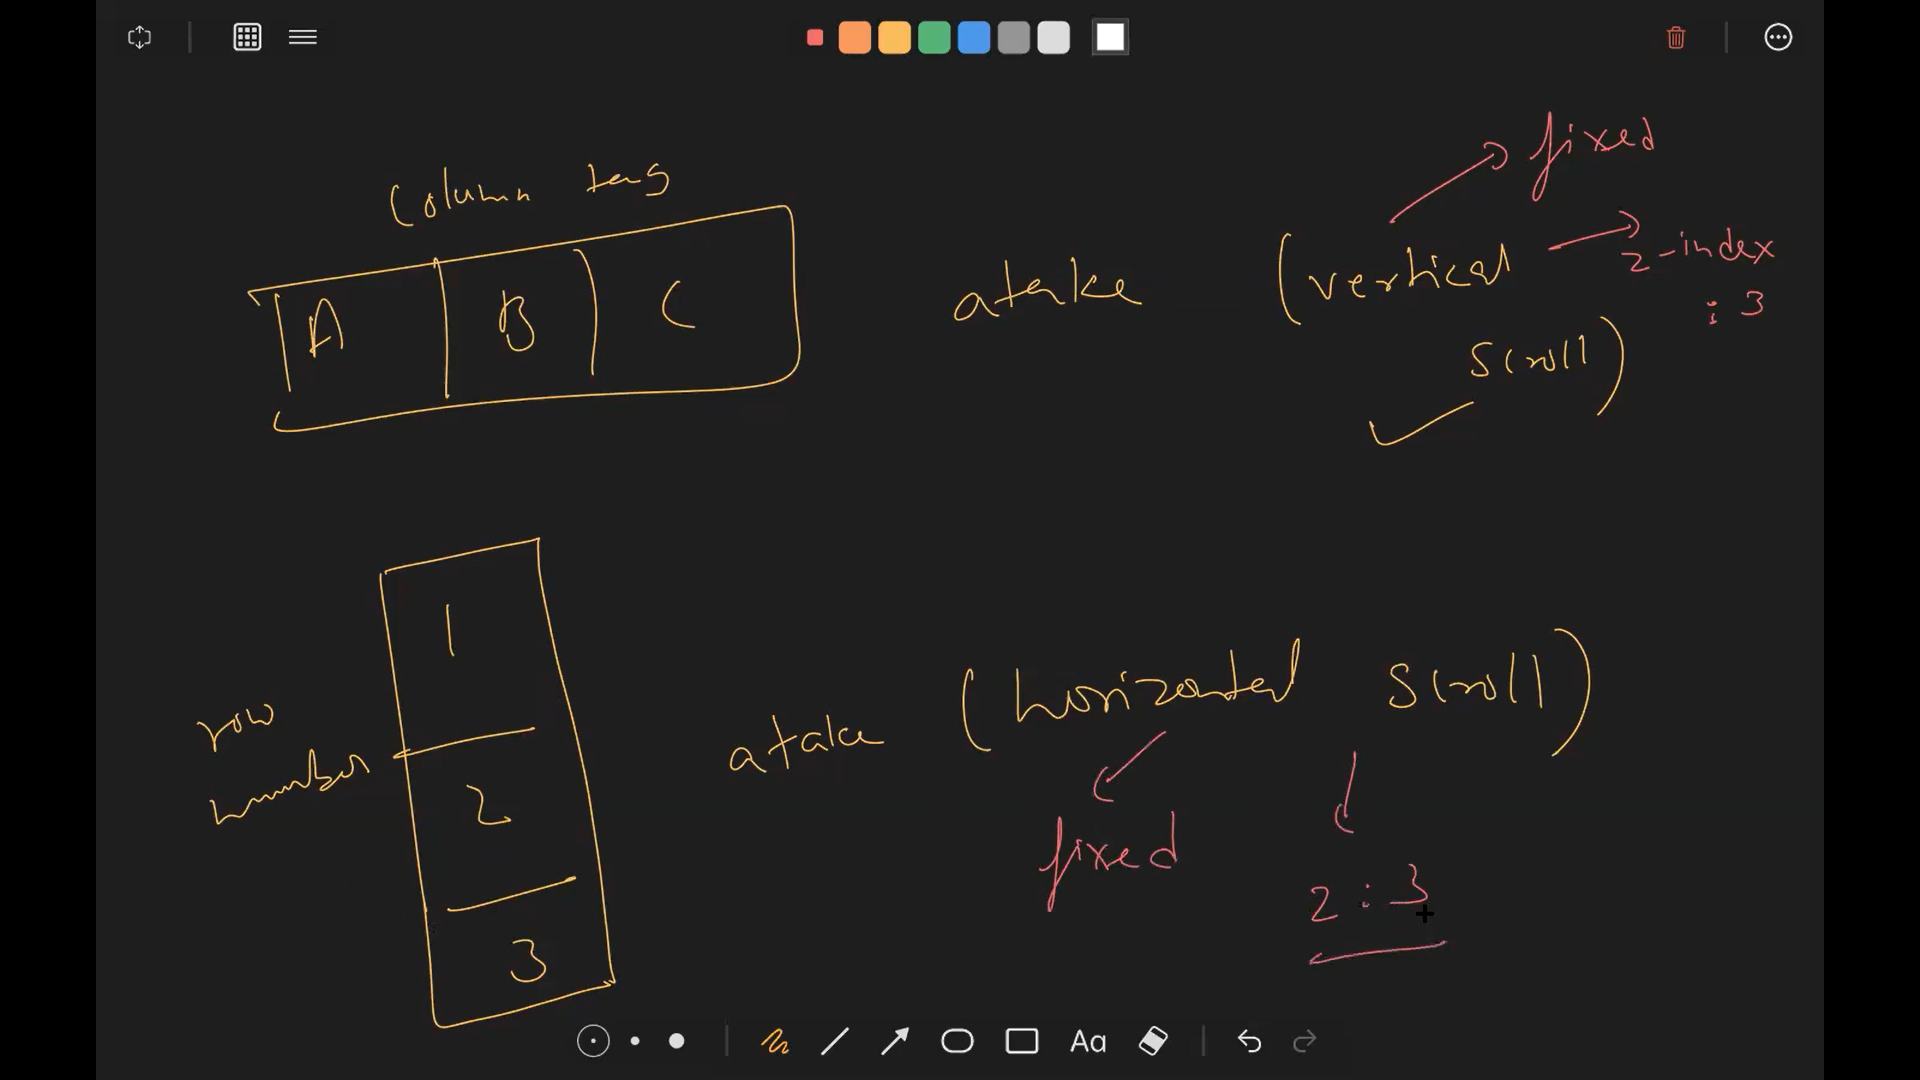 Column tags
A B C
atake (vertical scroll)
fixed
z-index : 3
row number
1
2
3
atake (horizontal scroll)
fixed
2 : 3
Aa